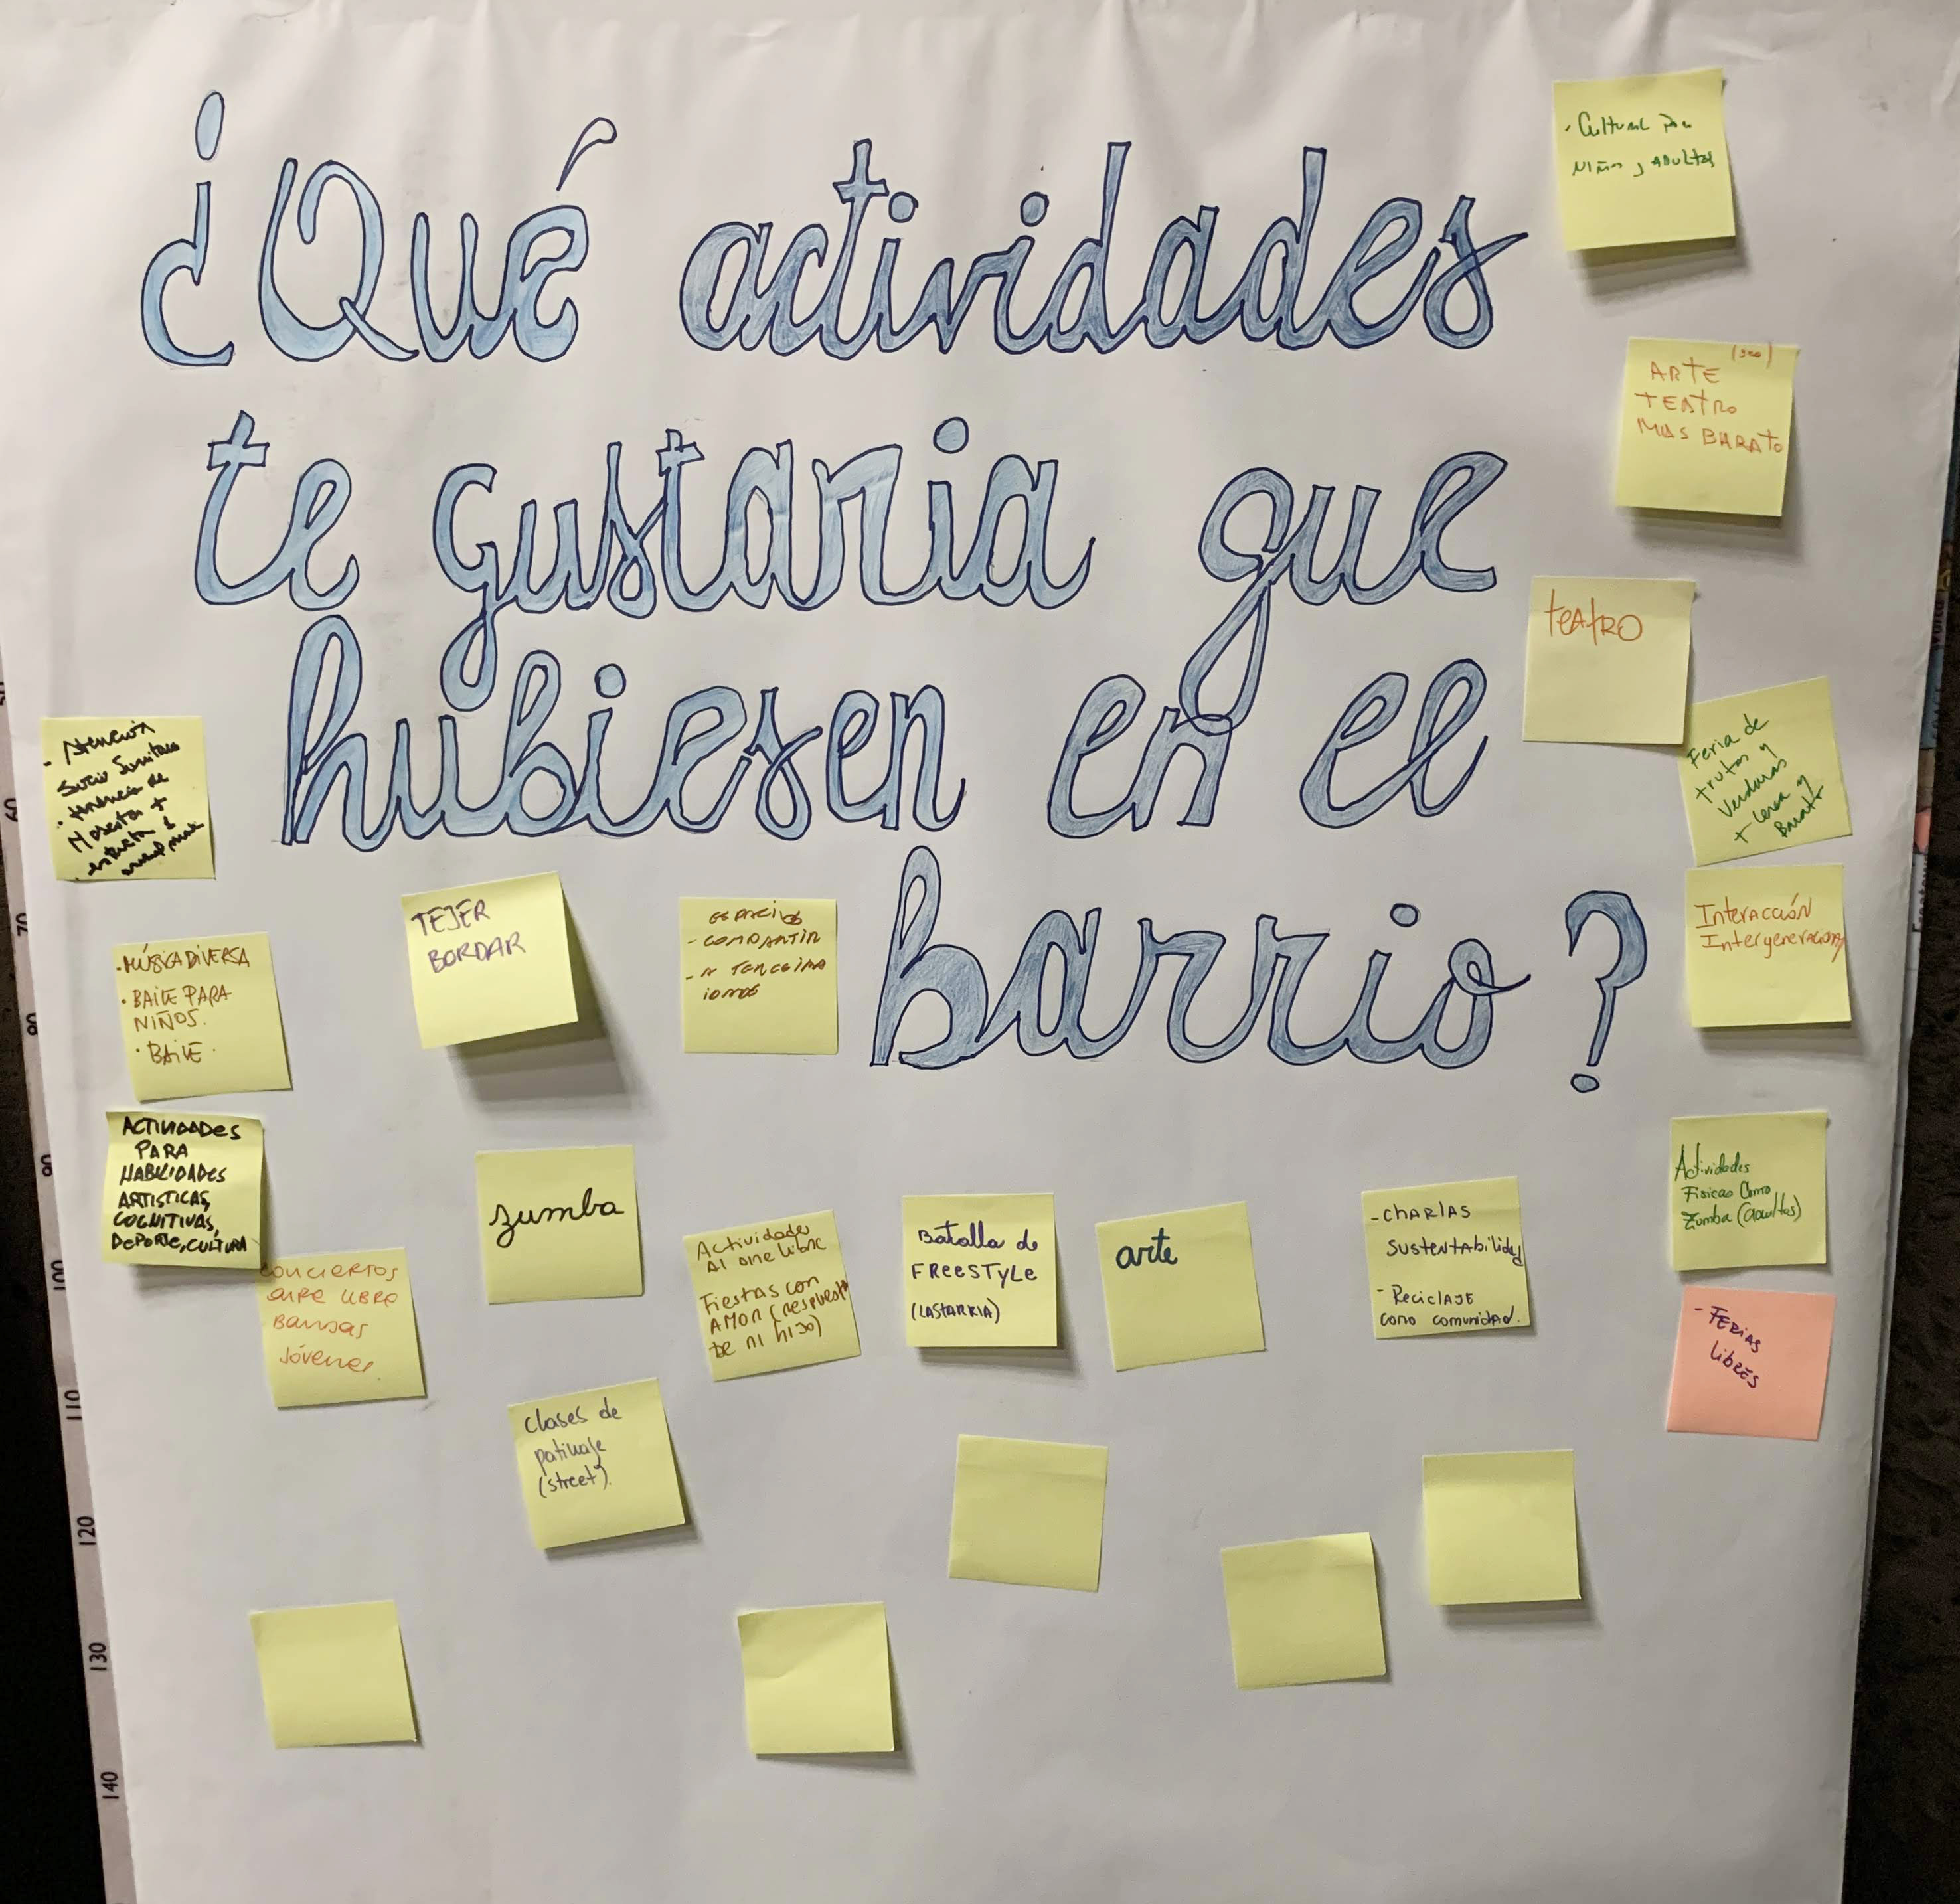 ¿Qué actividades
te gustaria que
hubiesen en el
barrio?
· Cultural para
niños y adultos
ARTE
TEATRO
MAS BARATO
teatro
Feria de
frutas y
Verduras
+ cerca y
Barato
Interacción
Intergeneracional
Actividades
Fisicas como
Zumba (adultos)
- FERIAS
LIBRES
- Atención
+
· MÚSICA DIVERSA
· BAILE PARA
NIÑOS.
· BAILE.
TEJER
BORDAR
ESPACIOS
- COMPARTIR
-
ACTIVIDADES
PARA
HABILIDADES
ARTISTICAS,
COGNITIVAS,
DEPORTE, CULTURA
CONCIERTOS
AIRE LIBRE
BANDAS
JÓVENES
zumba
Actividades
Al aire libre
Fiestas con
AMOR (respuesta
DE MI HIJO)
Batalla de
FREESTYLE
(LASTARRIA)
arte
- CHARLAS
SUSTENTABILIDAD
- Reciclaje
como comunidad.
Clases de
patinaje
(street).
90
100
110
120
130
140